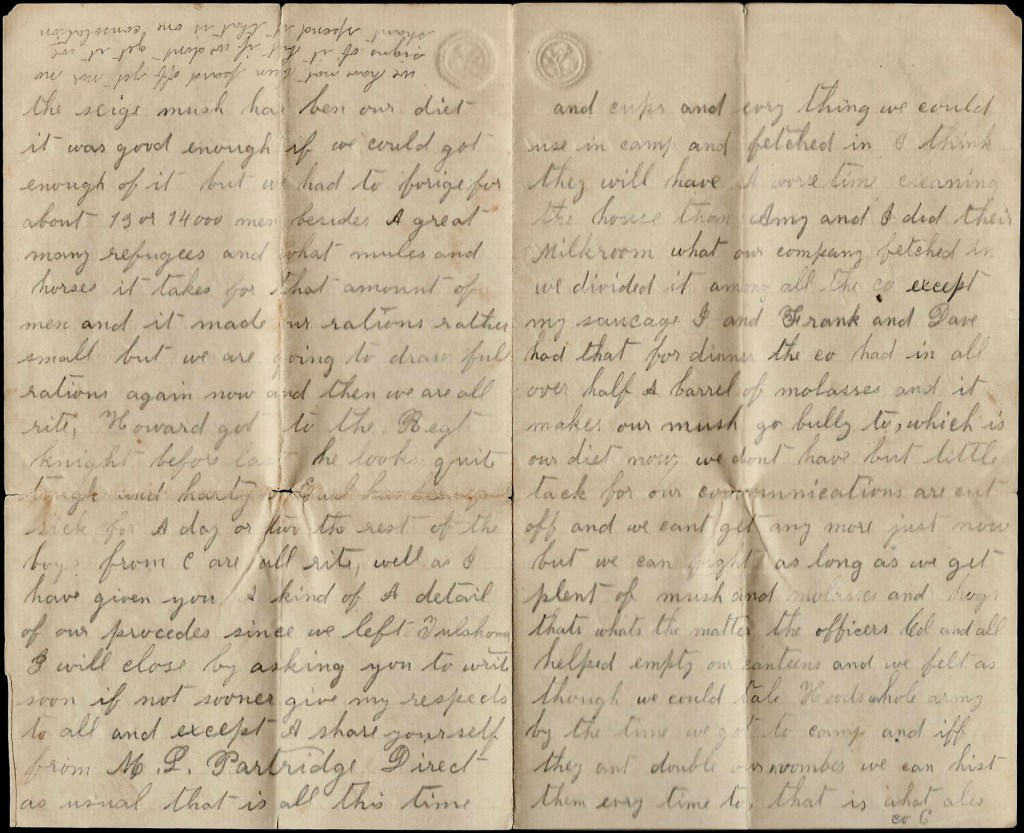 we have not ben paid off yet nor no
signs of it but if we dont get it we
shant spend it that is one consolation
the seige mush has ben our diet
it was good enough if we could got
enough of it but we had to forige for
about 13 or 14000 men besides A great
many refugees and what mules and
horses it takes for that amount of
men and it made our rations rather
small but we are going to draw ful
rations again now and then we are all
rite, Howard got to the Regt
knight before last he looks quite
tough and harty
sick for A day or two the rest of the
boys from C are all rite, well as I
have given you A kind of A detail
of our procedes since we left Tulahoma
I will close by asking you to write
soon if not sooner give my respects
to all and except A share yourself
from M. L. Partridge Direct
as usual that is all this time
and cups and evry thing we could
use in camp and fetched in I think
they will have A worse time cleaning
the house than Amy and I did their
Milkroom what our company fetched in
we divided it among all the co except
my saucage I and Frank and Dave
had that for dinner the co had in all
over half A barrel of molasses and it
makes our mush go bully to, which is
our diet now, we dont have but little
tack for our communnications are cut
off and we cant get any more just now
but we can fight as long as we get
plent of mush and molasses and hogs
thats whats the matter the officers Col and all
helped empty our canteens and we felt as
though we could take Hoods whole army
by the time we got to camp and iff
they ant double our noombes we can hist
them evry time to, that is what ales
co C